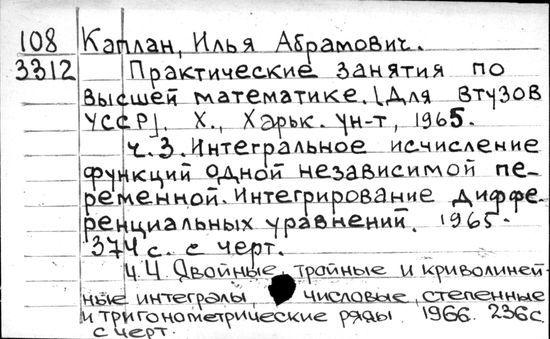 108 Каплан, Илья Абрамович.
3312 Практические занятия по
высшей математике. [Для втузов
УССР]. Х., Харьк. ун-т, 1965.
ч.3. Интегральное исчисление
функций одной независимой пе-
ременной. Интегрирование диффе-
ренциальных уравнений. 1965.
374 с. с черт.
Ч.4 Двойные, тройные и криволиней-
ные интегралы, числовые, степенные
и тригонометрические ряды. 1966. 236с.
с черт.